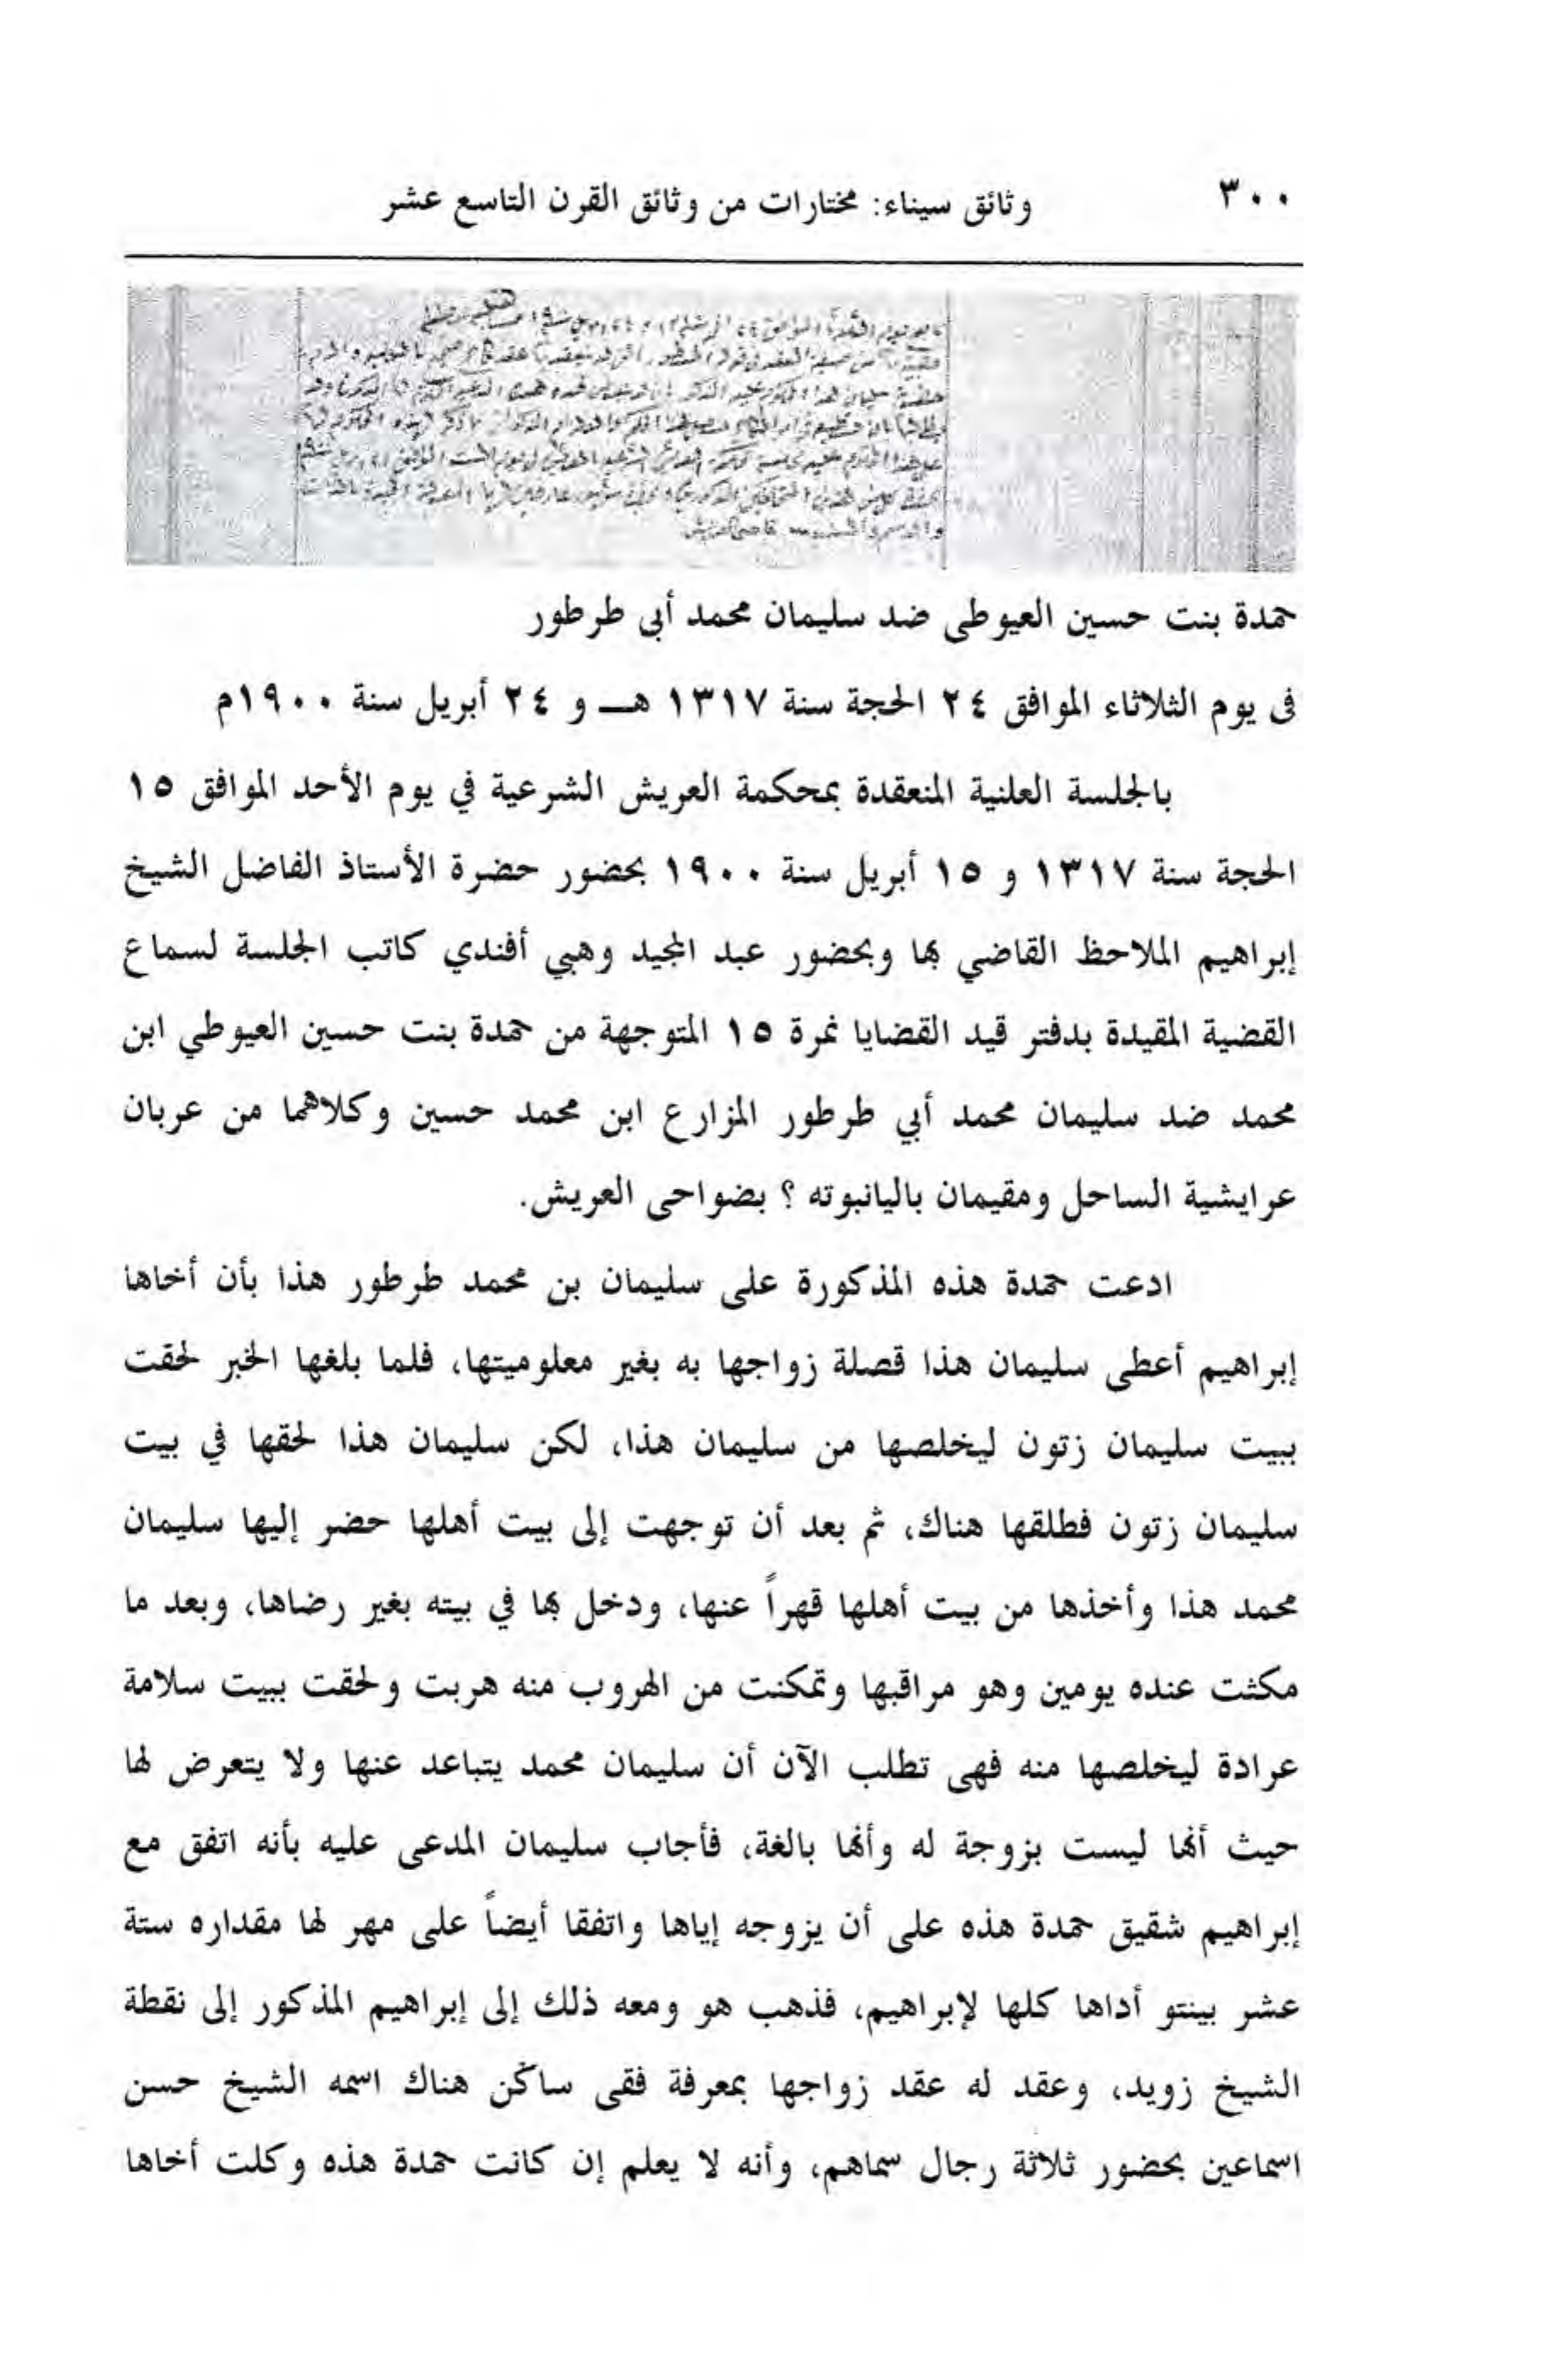 ٣٠٠
وثائق سيناء: مختارات من وثائق القرن التاسع عشر
حمدة بنت حسين العيوطى ضد سليمان محمد أبى طرطور
فى يوم الثلاثاء الموافق ٢٤ الحجة سنة ١٣١٧ هـــ و ٢٤ أبريل سنة ١٩٠٠م
بالجلسة العلنية المنعقدة بمحكمة العريش الشرعية في يوم الأحد الموافق ١٥
الحجة سنة ١٣١٧ و ١٥ أبريل سنة ١٩٠٠ بحضور حضرة الأستاذ الفاضل الشيخ
إبراهيم الملاحظ القاضي بها وبحضور عبد المجيد وهبي أفندي كاتب الجلسة لسماع
القضية المقيدة بدفتر قيد القضايا نمرة ١٥ المتوجهة من حمدة بنت حسين العيوطي ابن
محمد ضد سليمان محمد أبي طرطور المزارع ابن محمد حسين وكلاهما من عربان
عرايشية الساحل ومقيمان باليانبوته ؟ بضواحى العريش.
ادعت حمدة هذه المذكورة على سليمان بن محمد طرطور هذا بأن أخاها
إبراهيم أعطى سليمان هذا قصلة زواجها به بغير معلوميتها، فلما بلغها الخبر لحقت
ببيت سليمان زتون ليخلصها من سليمان هذا، لكن سليمان هذا لحقها في بيت
سليمان زتون فطلقها هناك، ثم بعد أن توجهت إلى بيت أهلها حضر إليها سليمان
محمد هذا وأخذها من بيت أهلها قهراً عنها، ودخل بها في بيته بغير رضاها، وبعد ما
مكثت عنده يومين وهو مراقبها وتمكنت من الهروب منه هربت ولحقت ببيت سلامة
عرادة ليخلصها منه فهى تطلب الآن أن سليمان محمد يتباعد عنها ولا يتعرض لها
حيث أنها ليست بزوجة له وأنها بالغة، فأجاب سليمان المدعى عليه بأنه اتفق مع
إبراهيم شقيق حمدة هذه على أن يزوجه إياها واتفقا أيضاً على مهر لها مقداره ستة
عشر بينتو أداها كلها لإبراهيم، فذهب هو ومعه ذلك إلى إبراهيم المذكور إلى نقطة
الشيخ زويد، وعقد له عقد زواجها بمعرفة فقى ساكن هناك اسمه الشيخ حسن
اسماعين بحضور ثلاثة رجال سماهم، وأنه لا يعلم إن كانت حمدة هذه وكلت أخاها